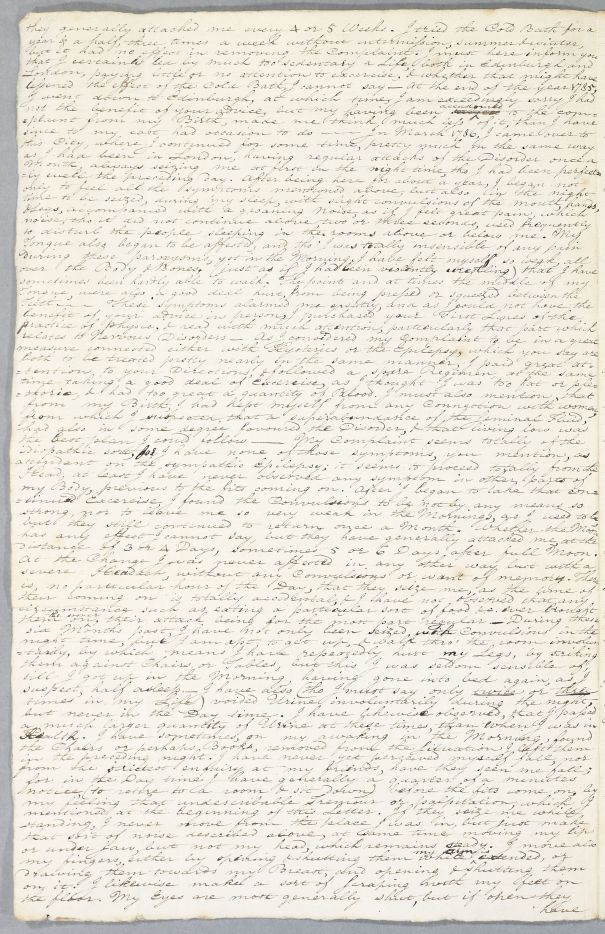 they generally attacked me every 4 or 5 Weeks. I tried the Cold Bath for a
year & a half, three times a week without intermission, summer & winter,
but it had no effect in removing the Complaint. I must here inform you
that I certainly led by much too sedentary a Life, both in Edinburgh and
London, paying little or no attention to excercise, & whether that might have
lessened the effect of the Cold Bath, I cannot say — At the end of the year 1785,
I went down to Edinburgh, at which time, I am exceedingly sorry I had
not the benefit of your advice, but my having been accustomed to the com=
plaint from my Birth, make me think much less of it, than I have
since to my cost, had occasion to do — In March 1786, I came over to
this City, where I continued for some time, pretty much in the same way
as I had been in London, having regular attacks of the Disorder once a
Month, always seizing me at first in the night time, tho' I had been perfect=
=ly well the preceeding Day. After being here about a year, I began not
only to feel all the symptoms mentioned above, but also in the night
time to be seized, during my sleep, with slight convulsions of the mouth, hands,
& legs, accompanied with a groaning Noise, as if I felt great pain, which
noise, tho' it did not continue above two or three seconds, used frequently
to disturb the people sleeping in the rooms above or below me. My
Tongue also began to be affected, and tho' I was totally insensible of any pain
During these paroxysms, yet in the Morning, I have felt myself so weak, all
over the Body & Bones, (just as if I had been violently wrestling) that I have
sometimes been hardly able to walk. The point and at times the middle of my
Tongue, were also a good deal hurt, from being pushed or squeezed between the
teeth. — These symptoms alarmed me exceedingly, and as I could not have the
benefit of your advice in person, I purchased your First Lines of the
practice of physic, & read with much attention, particularly that part which
relates to Nervous Disorders — As I considered my Complaint to be in a great
measure connected either with Hysterics or the Epilepsy, which you say are
both to be treated pretty nearly in the same manner, I paid great at=
=tention, to your Directions, & followed a spare Regimen, at the same
time taking a good deal of Excercise, as I thought I was too fat or ple=
=thoric & had too great a quantity of Blood. I must also mention, that
from my Birth, I had kept myself from any Connection with women,
from which I suspected, that a superabundance of the Seminal Fluid,
had also in some degree favoured the Disorder, & that living low was
the best plan I could follow — My Complaint seems totally of the
idiopathic sort, for I have none of those symptoms, you mention, as
attendant on the sympathic Epilepsy; it seems to proceed totally from the
Head, at least I have never observed any symptom in other parts of
my Body, previous to the fits coming on. After I began to take that con=
=tinued Excercise, I found the Convulsions to be not by any means so
strong, nor to leave me so very weak in the Mornings, as it used to do,
but they still continued to return once a Month — Whether the Moon
has any effect I cannot say, but they have generally attacked me at the
Distance of 3 or 4 Days, sometimes 5 or 6 Days after full Moon.
At the Change I was never affected in any other way, but with a
severe Headach, without any Convulsions or want of memory. There
is no particular hour of the Day that they seize me, as the time of
their coming on is totally accidental, & I have not observed that any
circumstance such as eating a particular sort of food &c. ever brought
them on; their attack being for the most part regular — During these
six Months past, I have not only been seized with Convulsions in the
night time, but am apt to get up & walk thro' the room instan=
=tarily, by which means I have repeatedly hurt my Legs, by striking
them against Chairs, or Tables, but this I was seldom sensible of,
till I got up in the Morning, having gone into bed again, as I
suspect, half asleep — I have also (tho' I must say only twice or three
times in my Life) voided Urine involuntarily during the night,
but never in the Day time. I have likewise observed, that I passed
a much larger quantity of Urine in these times, than when I was in
Health. I have sometimes, on my awaking in the Morning, found
the Chairs or perhaps Books, removed from the situation I left them
in the preceeding night. I have never yet perceived myself fall, nor
from the strictest enquiry at my friends, have they seen me fall;
for in the Day time, I have generally a quarter of a minutes
notice, to retire to a room & sit down, before the fits come on, by
my feeling that undescribable Tremour or palpitation, which I
mentioned at the beginning of this Letter. If they seize me while
standing, I never move from the place I was in, but just make
that sort of noise described above, at same time moving my lips
or under jaw, but not my head, which remains steady. I move also
my fingers, either by opening & shutting them while my arms extended, or
Drawing them towards my Breast, and opening & shutting them
on it. I likewise make a sort of scraping with my feet on
the floor. My Eyes are most generally shut, but if open they
have